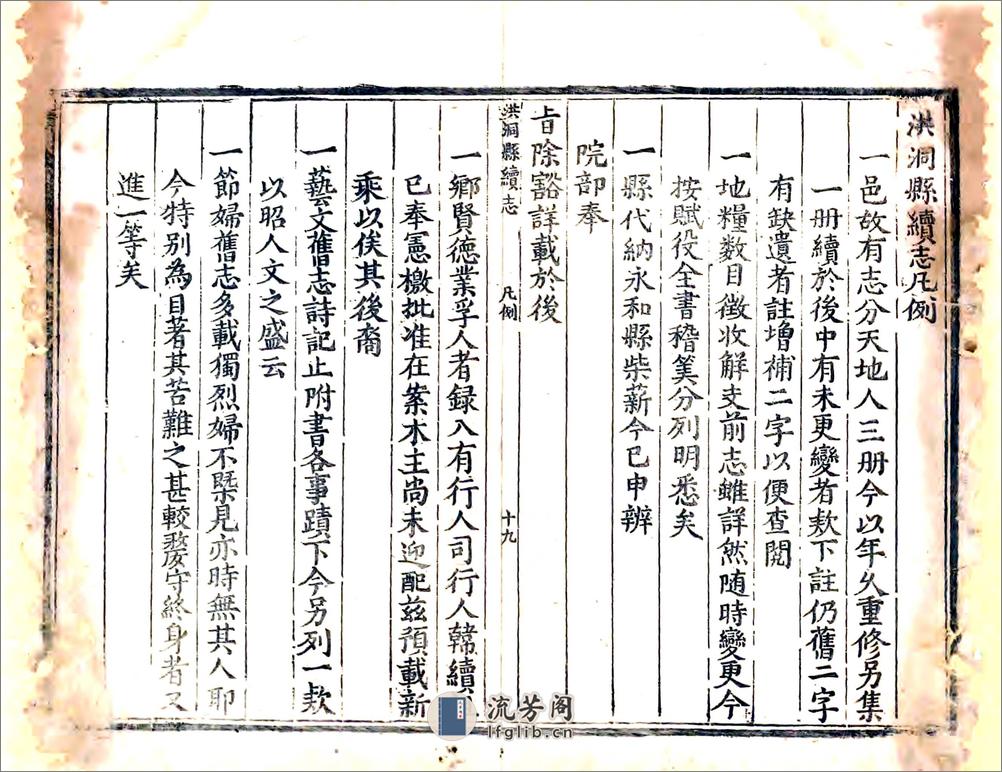 洪洞縣續志凡例
一邑故有志分天地人三册今以年久重修另集
一册續於後中有未更變者欵下註仍舊二字
有缺遺者註增補二字以便查閱
一地糧数目徴收解支前志雖詳然随時變更今
按賦役全書稽筭分列明悉矣
一縣代納永和縣柴薪今已申辨
院部奉
旨除豁詳載於後
洪洞縣續志 凡例 十九
一鄉賢徳業孚人者録入有行人司行人韓續
已奉憲檄批准在案木主尚未迎配兹預載新
乘以俟其後裔
一藝文舊志詩記止附書各事蹟下今另列一欵
以昭人文之盛云
一節婦舊志多載獨烈婦不槩見亦時無其人耶
今特别為目著其苦難之甚較嫠守終身者又
進一等矣
流芳阁
lfglib.cn